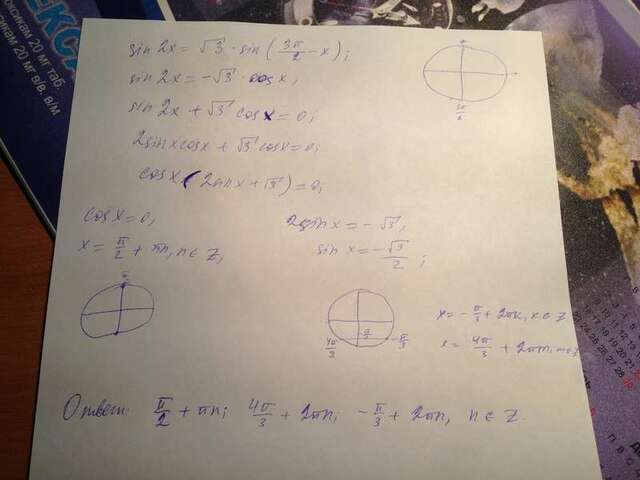 оксикам 20 мг таб.
сикам 20 мг в/в. в/м
ЛЕКСА
sin 2x = √3 · sin (3π/2 − x);
sin 2x = −√3 · cos x;
sin 2x + √3 cos x = 0;
2 sin x cos x + √3 cos x = 0;
cos x (2 sin x + √3) = 0;
3π/2
cos x = 0,
x = π/2 + πn, n ∈ Z,
2 sin x = −√3,
sin x = −√3/2;
4π/3
−π/3
x = −π/3 + 2πk, k ∈ Z
x = 4π/3 + 2πm, m ∈ Z
Ответ: π/2 + πn; 4π/3 + 2πn; −π/3 + 2πn, n ∈ Z.